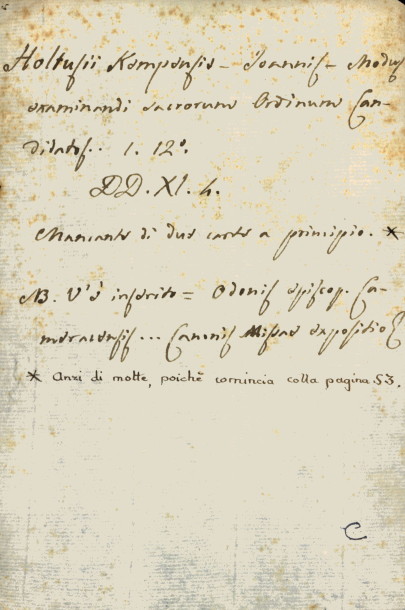 Holtusii Kempensis - Joannis - Modus
examinandi sacrorum Ordinum Can-
didatos. 1. 12°.
DD. XI. 4.
Mancante di due carte a principio. *
NB. V'è inserito = Odonis episcop. Ca-
meracensis... Canonis Missae expositio
* Anzi di molte, poichè comincia colla pagina 53.
C